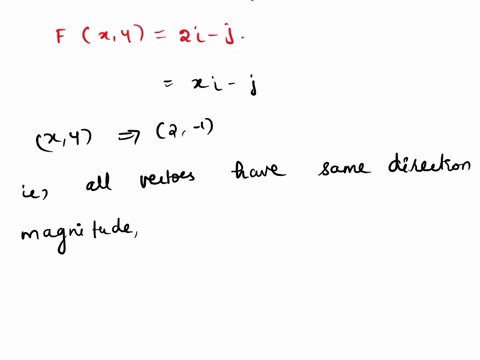 F (x,y) = 2i - j.
= xi - j
(x,y) ⇒ (2,-1)
ie, all vectors have same direction
magnitude,